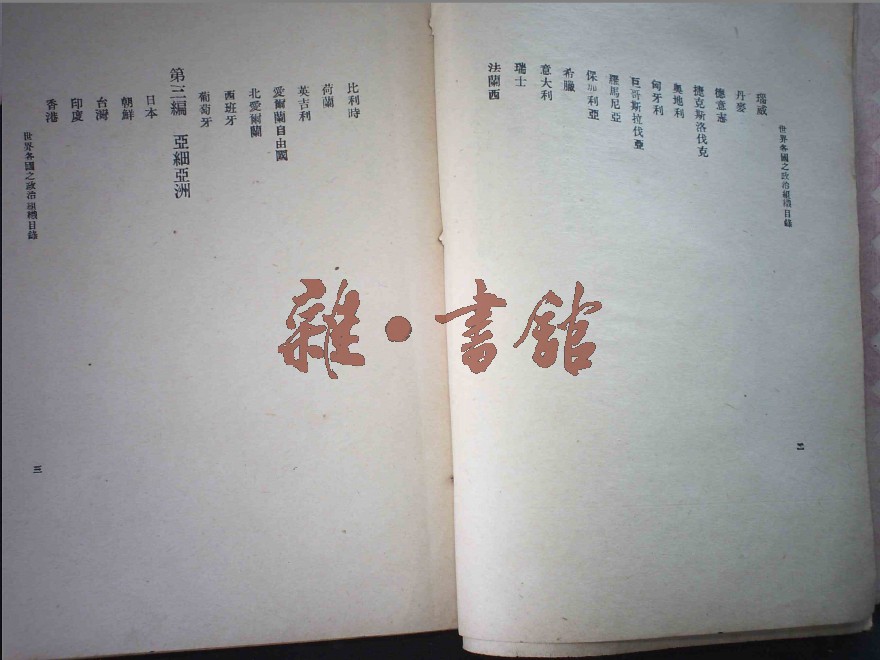 世界各國之政治組織目錄
瑞威
丹麥
德意志
捷克斯洛伐克
奧地利
匈牙利
巨哥斯拉伐亞
羅馬尼亞
保加利亞
希臘
意大利
瑞士
法蘭西
二
比利時
荷蘭
英吉利
愛爾蘭自由國
北愛爾蘭
西班牙
葡萄牙
第三編 亞細亞洲
日本
朝鮮
台灣
印度
香港
世界各國之政治組織目錄
三
雜·書館